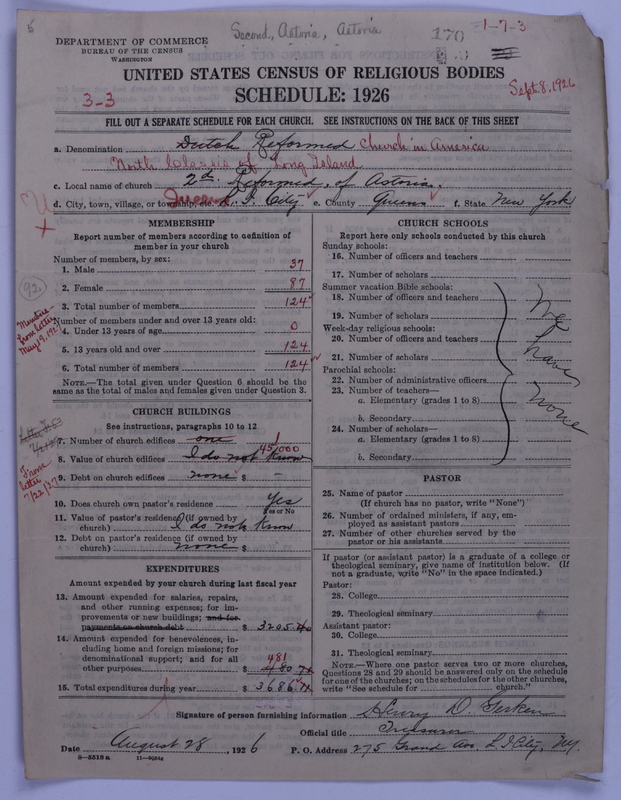 5
Second, Astoria, Astoria
170
1-7-3
DEPARTMENT OF COMMERCE
BUREAU OF THE CENSUS
WASHINGTON
UNITED STATES CENSUS OF RELIGIOUS BODIES
3-3
SCHEDULE: 1926
Sept. 8, 1926
FILL OUT A SEPARATE SCHEDULE FOR EACH CHURCH. SEE INSTRUCTIONS ON THE BACK OF THIS SHEET
a. Denomination Dutch Reformed Church in America
North Classis of Long Island
c. Local name of church 2nd. Reformed, of Astoria.
d. City, town, village, or township, etc. Queens L. I. City e. County Queens f. State New York
MEMBERSHIP
Report number of members according to definition of
member in your church
Number of members, by sex:
1. Male 37
2. Female 87
3. Total number of members 124
Number of members under and over 13 years old:
4. Under 13 years of age 0
5. 13 years old and over 124
6. Total number of members 124
NOTE.—The total given under Question 6 should be
the same as the total of males and females given under Question 3.
92
Members
from letter
May 19, 192
CHURCH BUILDINGS
See instructions, paragraphs 10 to 12
7. Number of church edifices one 1
8. Value of church edifices I do not know 45,000
9. Debt on church edifices none $ –
From
letter
7/22/27
10. Does church own pastor's residence Yes
Yes or No
11. Value of pastor's residence (if owned by
church) I do not know
12. Debt on pastor's residence (if owned by
church) none $
EXPENDITURES
Amount expended by your church during last fiscal year
13. Amount expended for salaries, repairs,
and other running expenses; for im-
provements or new buildings; and for
payments on church debt $ 3205.40
14. Amount expended for benevolences, in-
cluding home and foreign missions; for
denominational support; and for all
other purposes $ 480 72
481
15. Total expenditures during year $ 3686
CHURCH SCHOOLS
Report here only schools conducted by this church
Sunday schools:
16. Number of officers and teachers
17. Number of scholars
Summer vacation Bible schools:
18. Number of officers and teachers
19. Number of scholars
Week-day religious schools:
20. Number of officers and teachers
21. Number of scholars
Parochial schools:
22. Number of administrative officers
23. Number of teachers—
a. Elementary (grades 1 to 8)
b. Secondary
24. Number of scholars—
a. Elementary (grades 1 to 8)
b. Secondary
We
have
none
PASTOR
25. Name of pastor
(If church has no pastor, write "None")
26. Number of ordained ministers, if any, em-
ployed as assistant pastors
27. Number of other churches served by the
pastor or his assistants
If pastor (or assistant pastor) is a graduate of a college or
theological seminary, give name of institution below. (If
not a graduate, write "No" in the space indicated.)
Pastor:
28. College
29. Theological seminary
Assistant pastor:
30. College
31. Theological seminary
NOTE.—Where one pastor serves two or more churches,
Questions 28 and 29 should be answered only the schedule
for one of the churches; on the schedules for the other churches,
write "See schedule for church."
Signature of person furnishing information Henry D. Gerken
Official title Treasurer
Date August 28, 1926 P. O. Address 275 Grand Ave. L I City, N.Y.
8—5518a 11—9034g